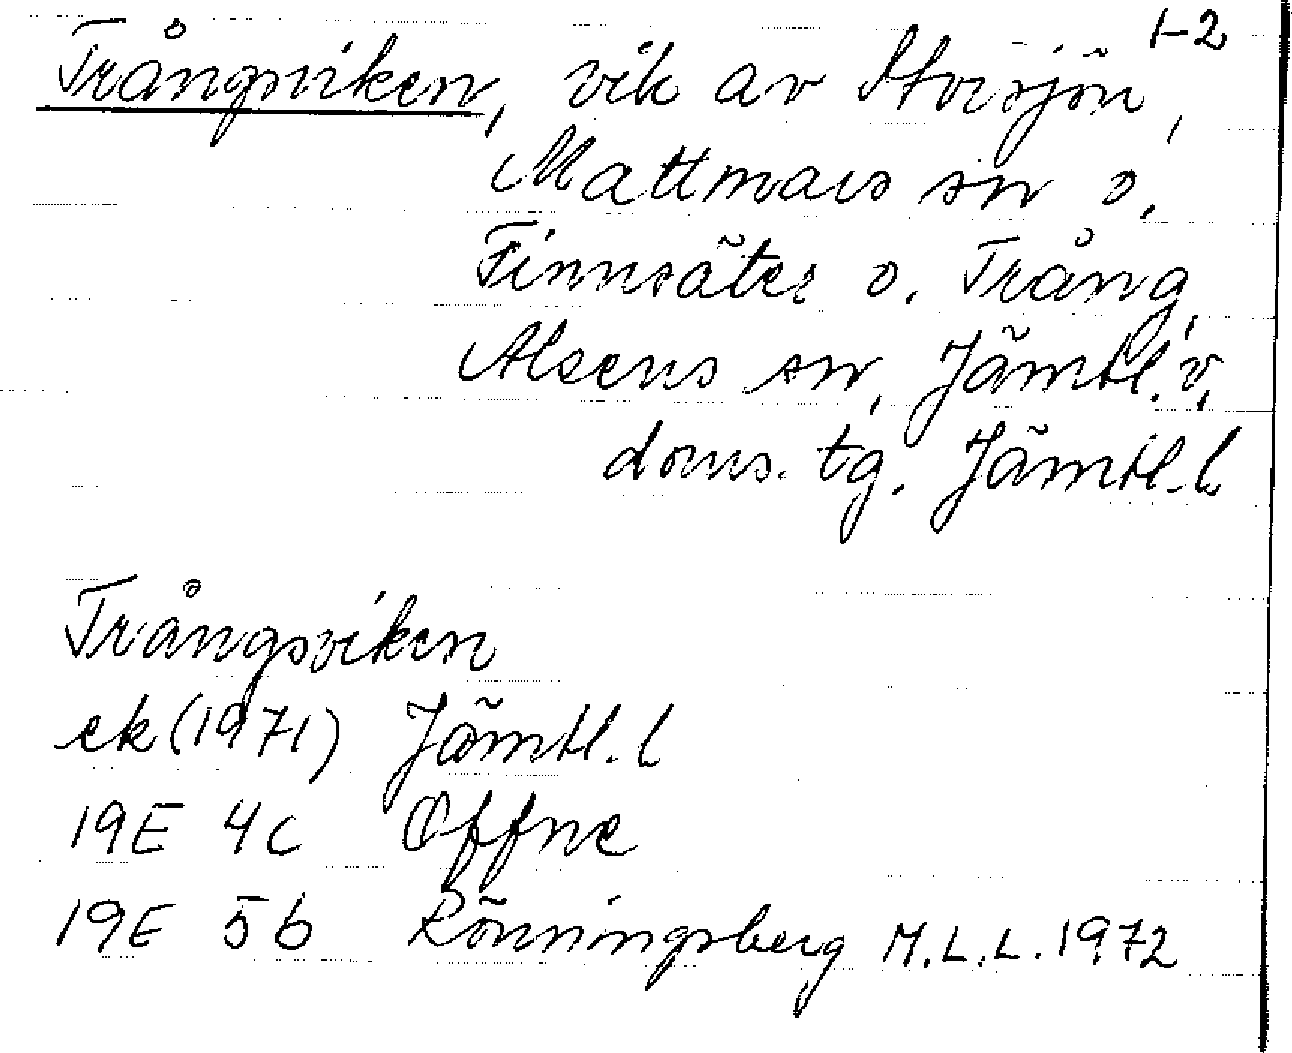 1-2
Trångsviken, vik av Storsjön,
Mattmars sn o.
Finnsäter o. Trång,
Alsens sn, Jämtl. v.
doms. tg. Jämtl. l
Trångsviken
ek (1971) Jämtl. l
19E 4c Offne
19E 5b Rönningsberg M.L.L. 1972